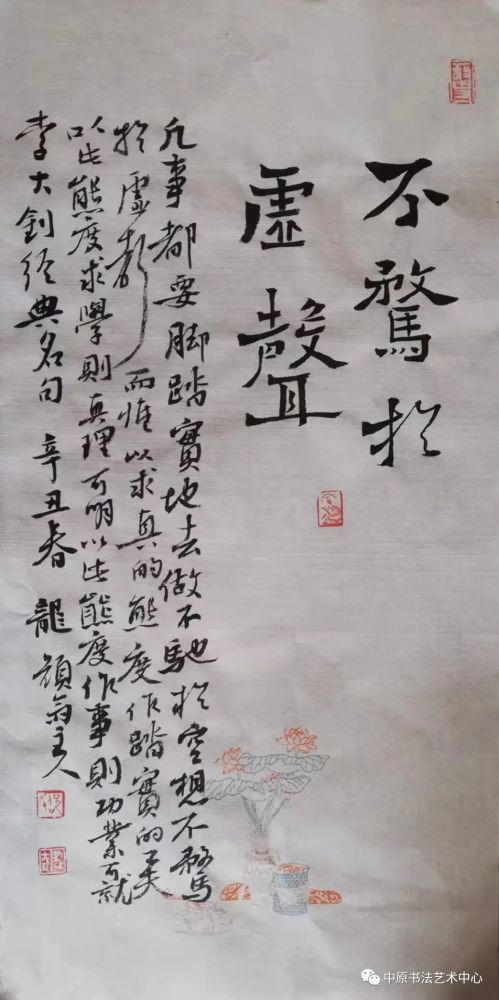 不騖於
虛聲
凡事都要脚踏實地去做不馳於空想不騖
於虛聲而惟以求真的態度作踏實的工夫
以此態度求學則真理可明以此態度作事則功業可就
李大釗经典名句 辛丑春 龍主人
中原书法艺术中心